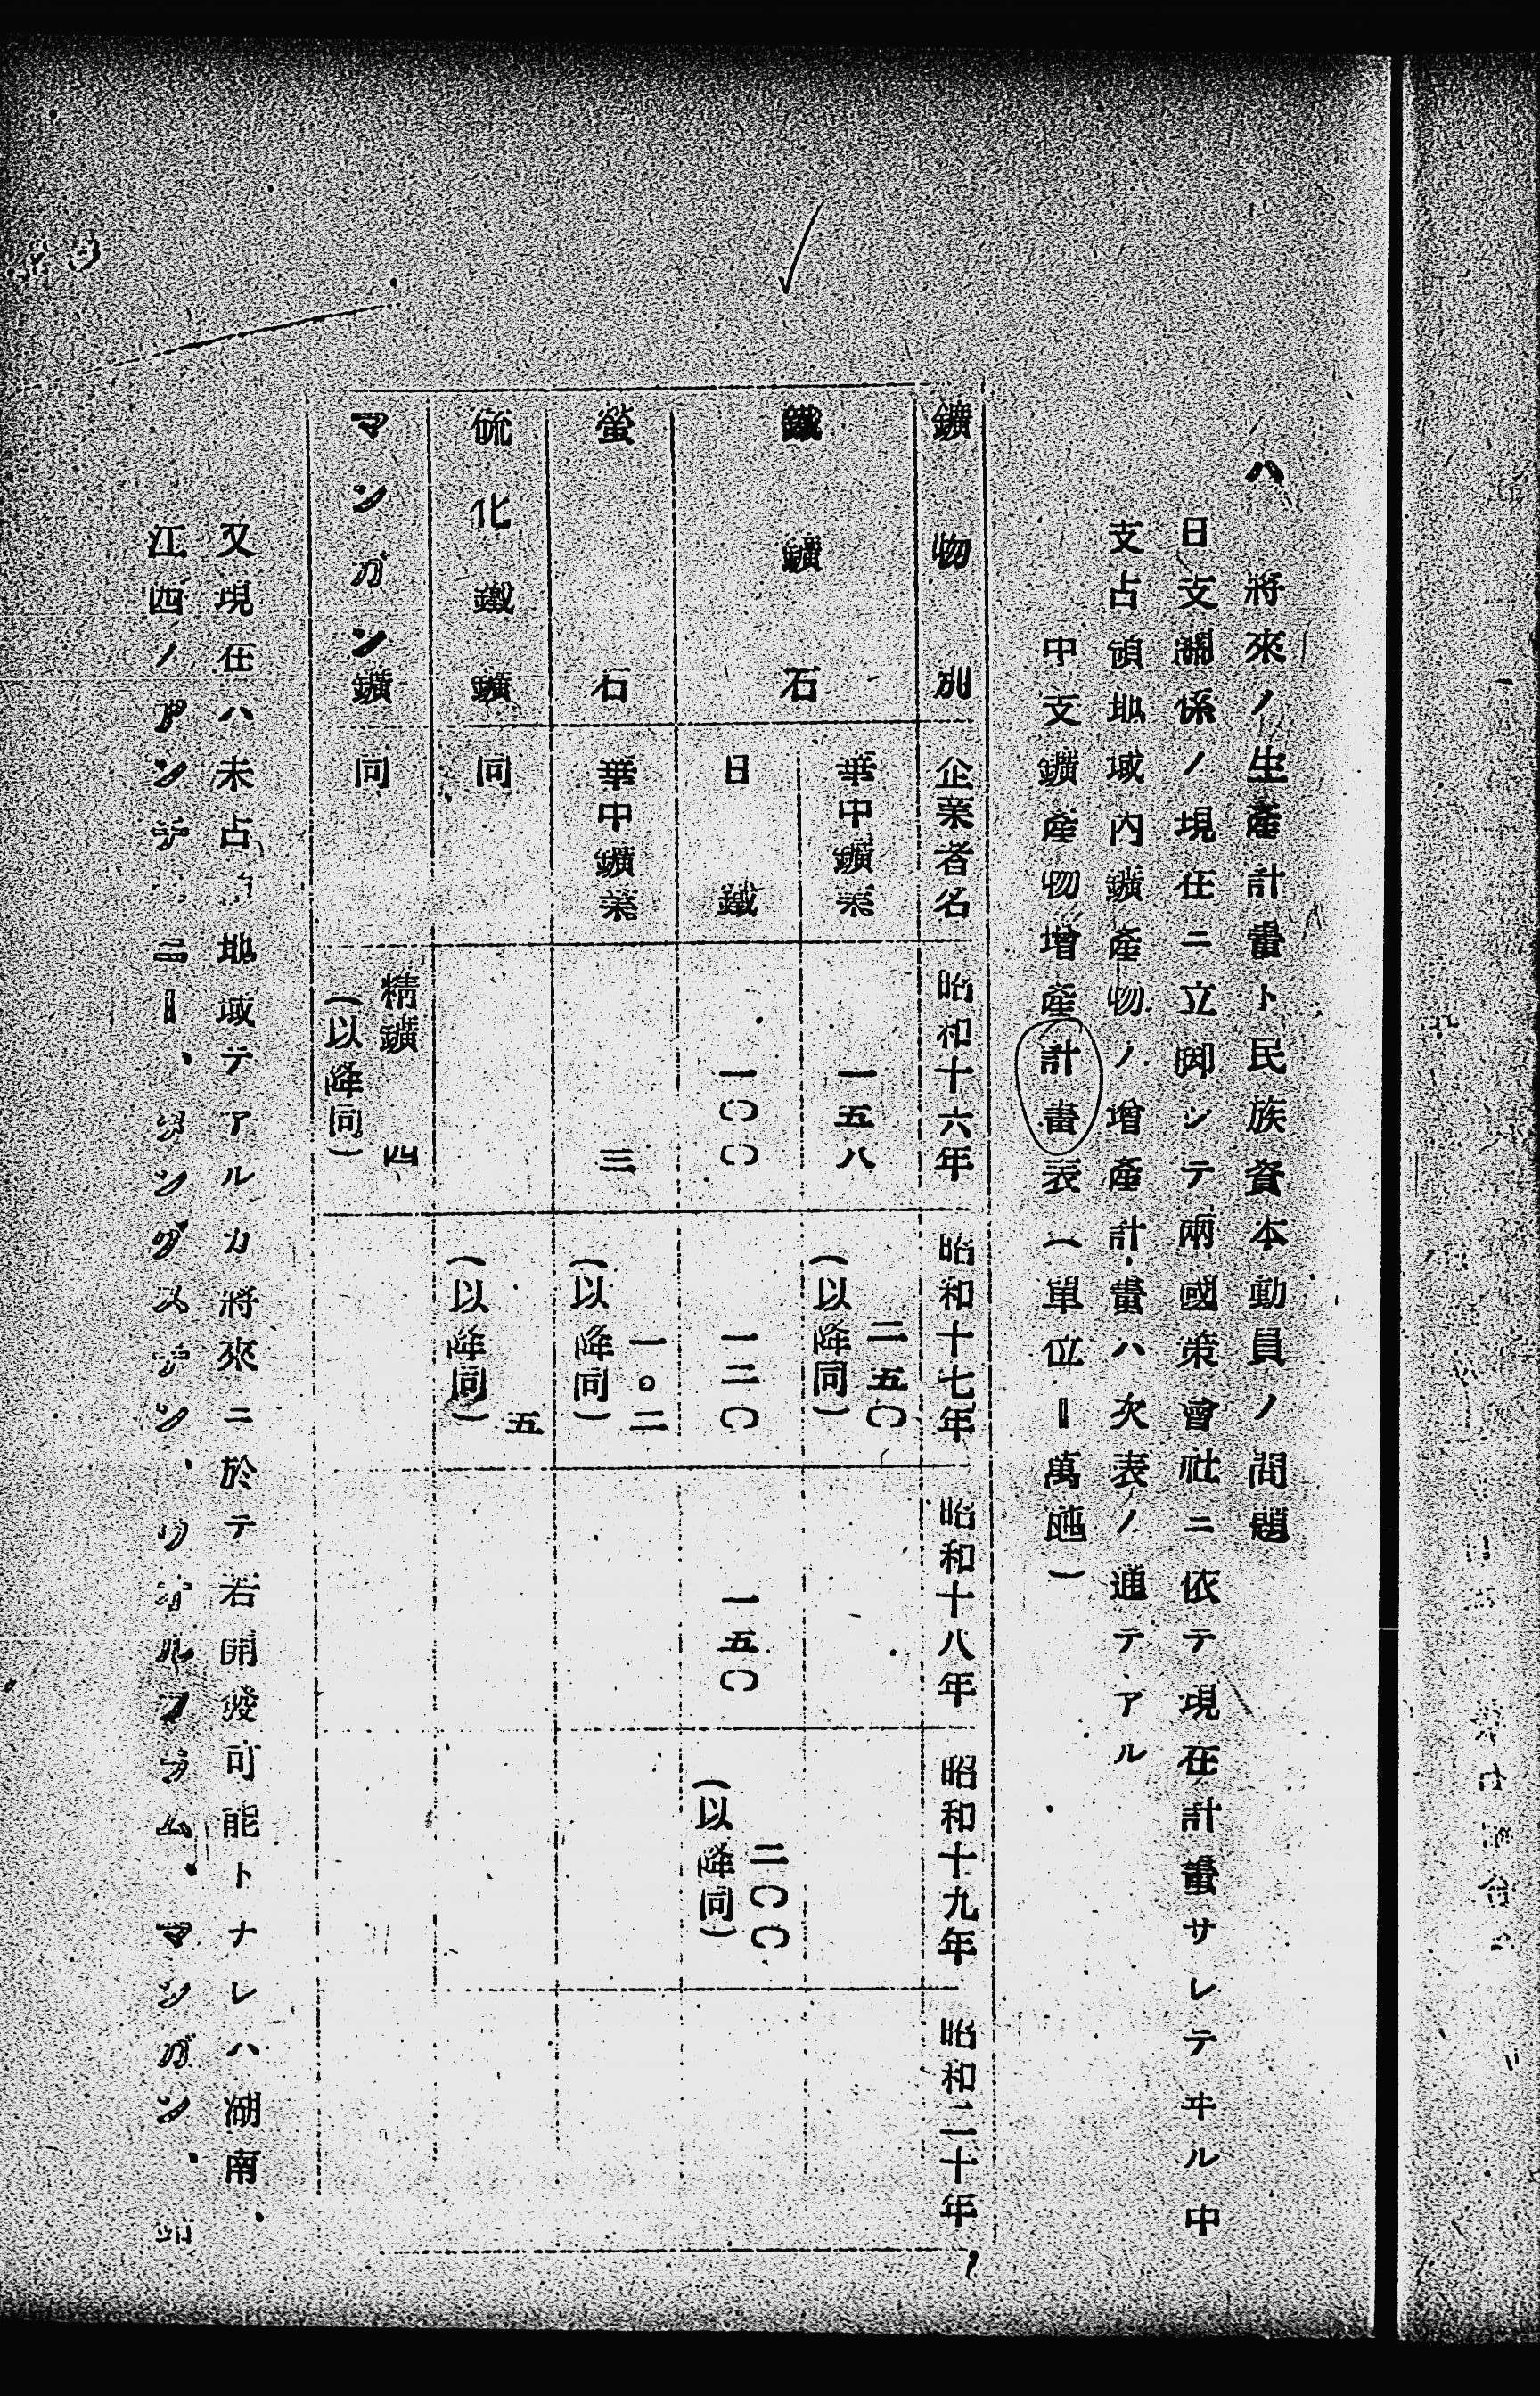 ハ 將來ノ生產計畫ト民族資本動員ノ問題
日支關係ノ現在ニ立脚シテ兩國策會社ニ依テ現在計畫サレテヰル中
支占領地域內鑛產物ノ增產計畫ハ次表ノ通テアル
中支鑛產物增產計畫表(單位ー萬瓲)
鑛物別 企業者名 昭和十六年 昭和十七年 昭和十八年 昭和十九年 昭和二十年
鐵鑛石 華中鑛業 一五八 二五〇(以降同)
日鐵 一〇〇 一二〇 一五〇 二〇〇(以降同)
螢石 華中鑛業 三 一。二(以降同)
硫化鐵鑛 同 五(以降同)
マンガン鑛 同 精鑛 四(以降同)
又現在ハ未占領地域テアルカ將來ニ於テ若開發可能トナレハ湖南、
江西ノアンチモニー、タングステン、ウオルフラム、マンガン、